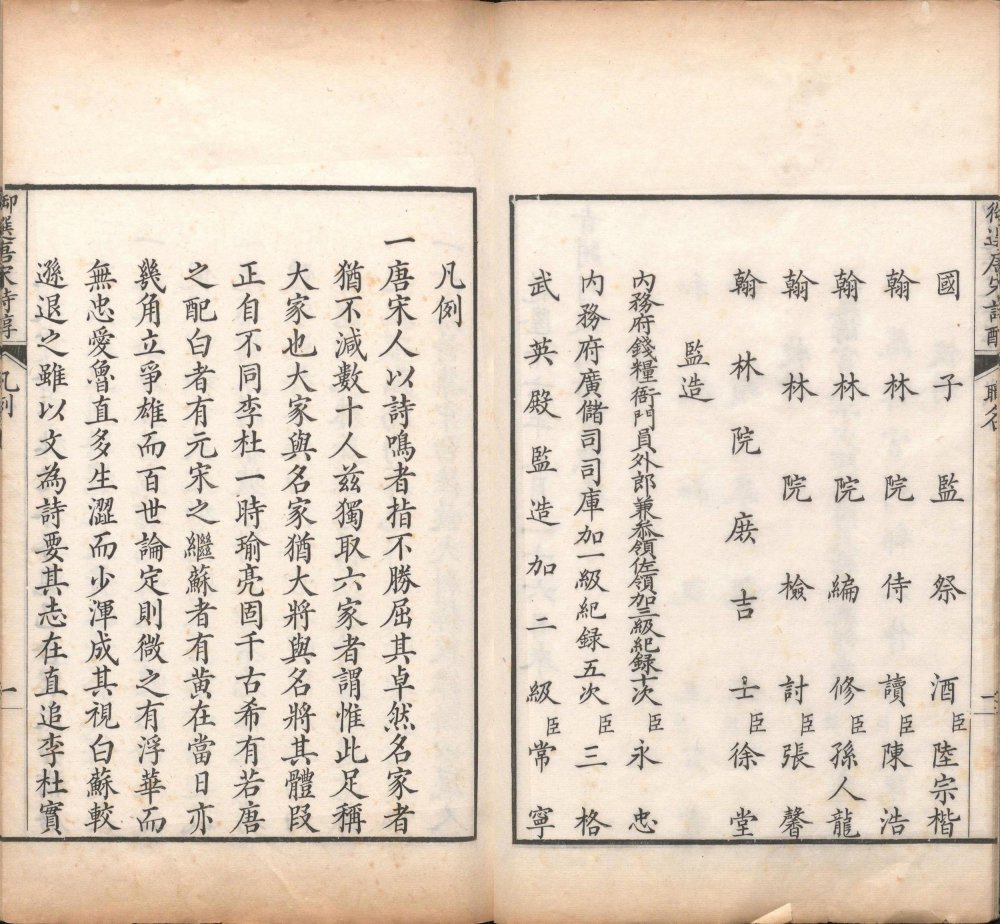 御選唐宋詩醇
職名
國子監祭酒臣陸宗楷
翰林院侍讀臣陳浩
翰林院編修臣孫人龍
翰林院檢討臣張馨
翰林院庶吉士臣徐堂
監造
內務府錢糧衙門員外郎兼叅領佐領加三級紀録十次臣永忠
內務府廣儲司司庫加一級紀録五次臣三格
武英殿監造加二級臣常寧
凡例
一唐宋人以詩鳴者指不勝屈其卓然名家者
猶不減數十人兹獨取六家者謂惟此足稱
大家也大家與名家猶大將與名將其體段
正自不同李杜一時瑜亮固千古希有若唐
之配白者有元宋之繼蘇者有黃在當日亦
幾角立爭雄而百世論定則微之有浮華而
無忠愛魯直多生澀而少渾成其視白蘇較
遜退之雖以文為詩要其志在直追李杜實
御選唐宋詩醇
凡例
一